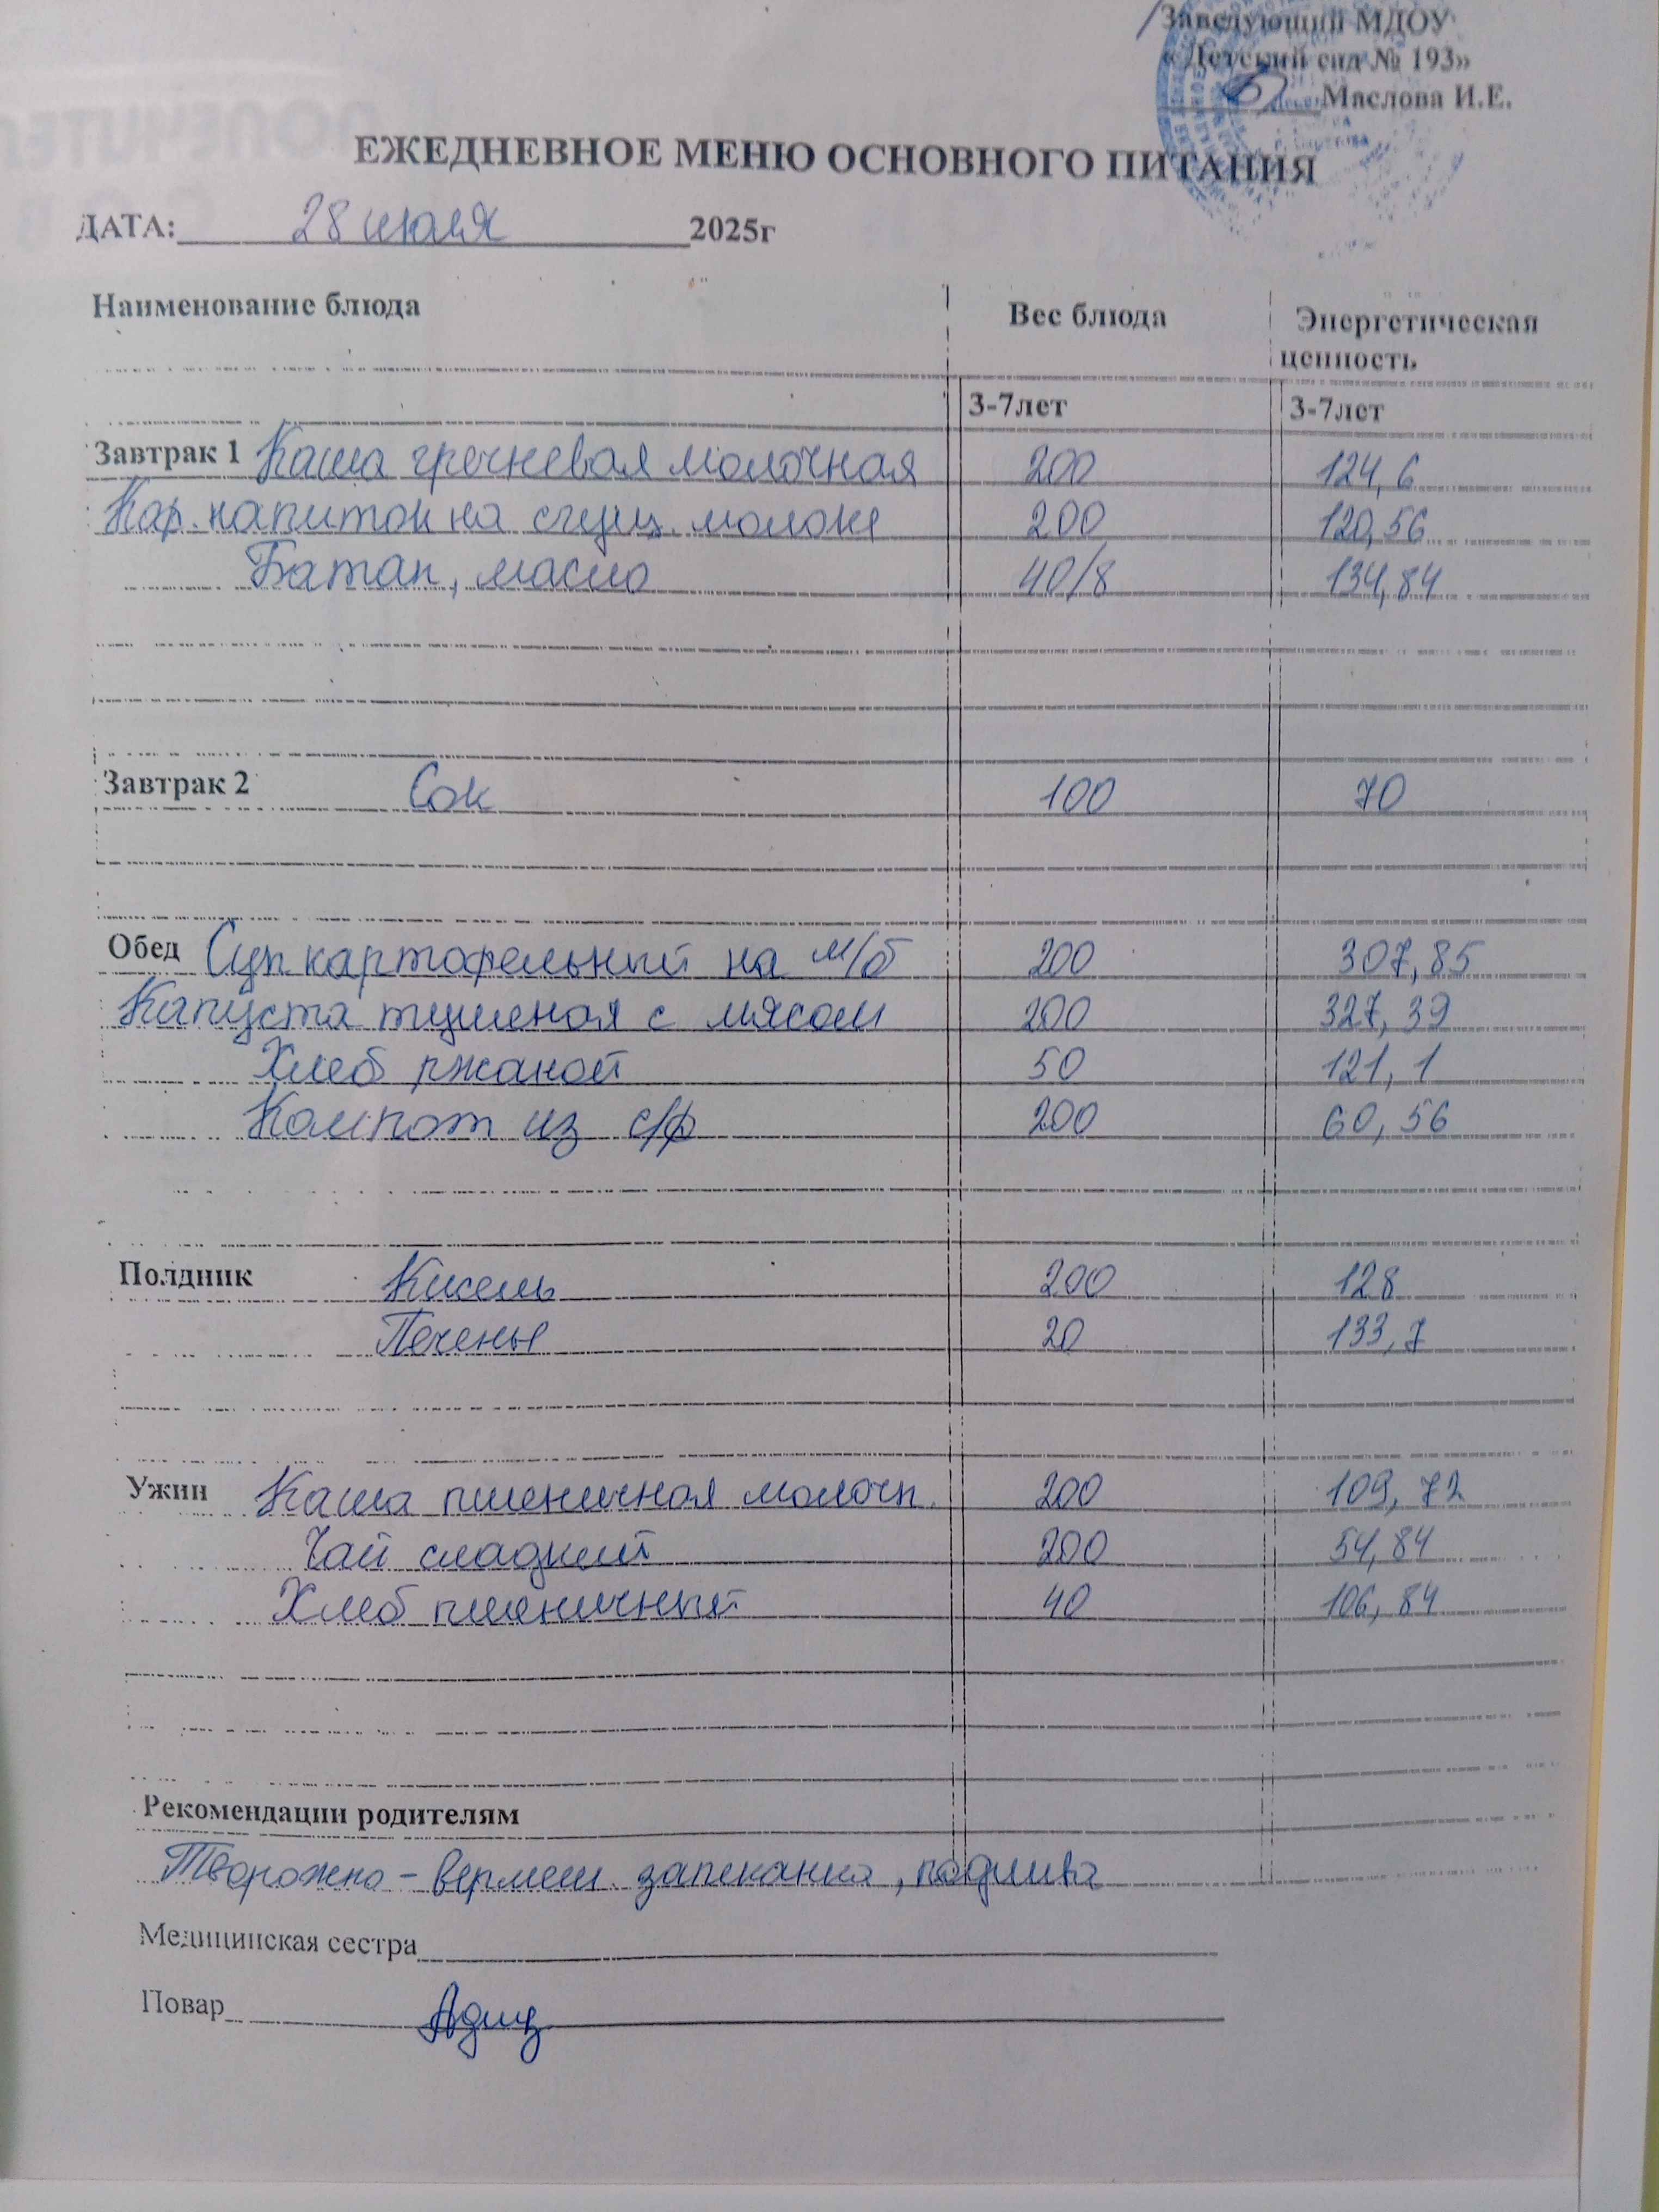 Заведующий МДОУ
«Детский сад № 193»
Маслова И.Е.
ЕЖЕДНЕВНОЕ МЕНЮ ОСНОВНОГО ПИТАНИЯ
ДАТА: 28 июля 2025г
Наименование блюда Вес блюда Энергетическая ценность
3-7лет 3-7лет
Завтрак 1 Каша гречневая молочная 200 124,6
Коф. напиток на сгущ. молоке 200 120,56
Батон, масло 40/8 134,84
Завтрак 2 Сок 100 70
Обед Суп картофельный на м/б 200 307,85
Капуста тушеная с мясом 200 327,39
Хлеб ржаной 50 121,1
Компот из с/ф 200 60,56
Полдник Кисель 200 128
Печенье 20 133,7
Ужин Каша пшеничная молочн. 200 109,72
Чай сладкий 200 54,84
Хлеб пшеничный 40 106,84
Рекомендации родителям
Творожно - вермеш. запеканка, подлива
Медицинская сестра
Повар